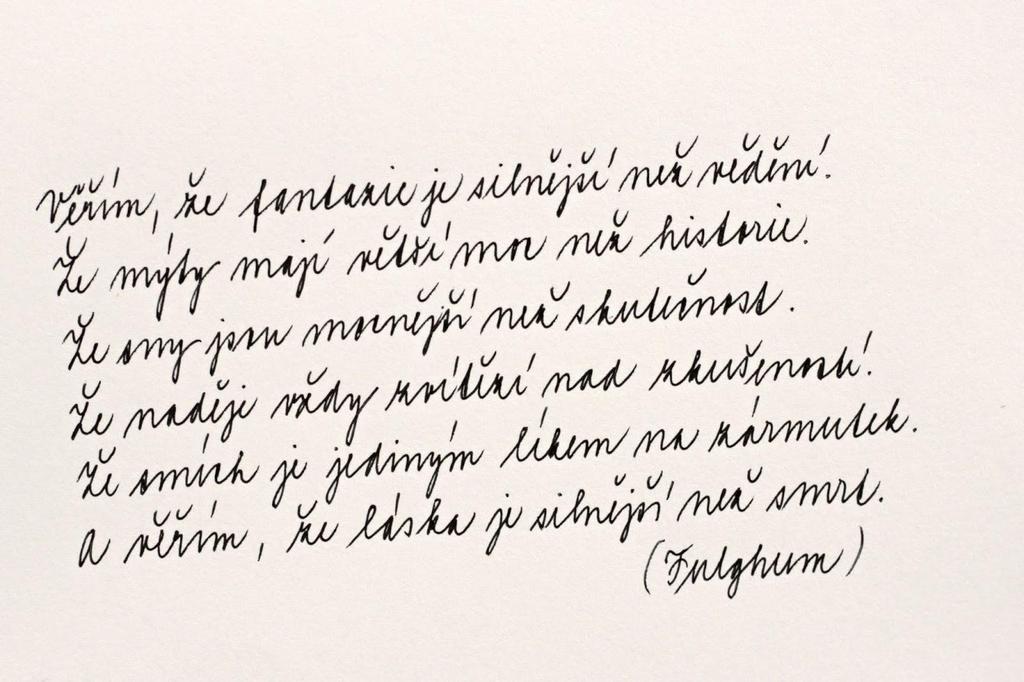 Věřím, že fantazie je silnější než vědění.
Že mýty mají větší moc než historie.
Že sny jsou mocnější než skutečnost.
Že naděje vždy zvítězí nad zkušeností.
Že smích je jediným lékem na zármutek.
A věřím, že láska je silnější než smrt.
(Fulghum)